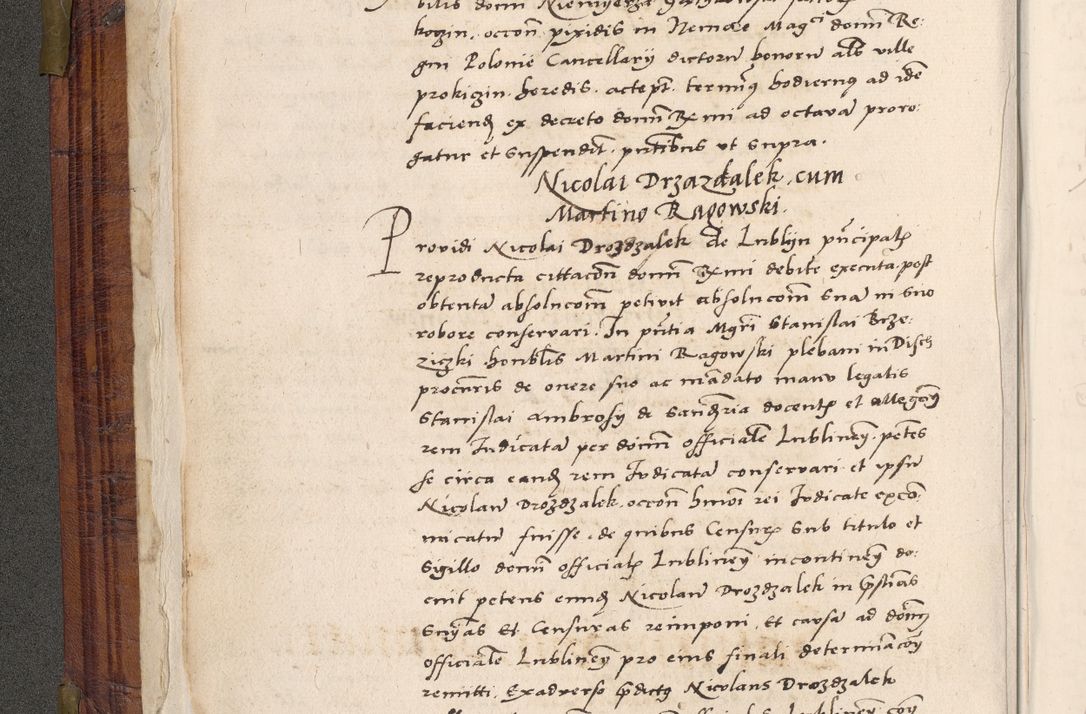 bilis domi Niemyerza
kozin, occon pixidis in Nemcze Magci domi Re:
gni Polonie Cancellarij dictoru bonoru als ville
prokiczin heredis, actept terminq hodiernq ad ide
faciend ex decreto domi Rxmi ad octava proro:
gatur et suspendit. pntibus ut supra.
Nicolai Drzazdalek, cum
Martino Ragowski.
Providi Nicolai Drozdzalek de Lublijn principalis
reproducta cittacon domi Rxmi debite executa, post
obtenta absolucom petivit absolucom sua in suo
robore conservari. In pntia Mgri Stanislai Brze:
ziczki honblis Martini Ragowski plebani in Disch
procuris de onere suo ac mandato manu legalis
Stanislai Ambrosij de Sandria docentis et allegan
rem Iudicata per domi officiale Lublinen, petens
se circa eand rem Iudicata conservari et ipsu
Nicolau Drozdzalek, occon hmoi rei Iudicate exco
micatu fuisse, de quibus Censuris sub titulo et
Sigillo domi officialis Lublinen incontinen do:
cuit petens eund Nicolau Drozdzalek in pristinas
snias et Censuras reimponi, et causa ad domi
officiale Lublinen pro eius finali determinacon
remitti, Exadverso pdictq Nicolaus Drozdzalek